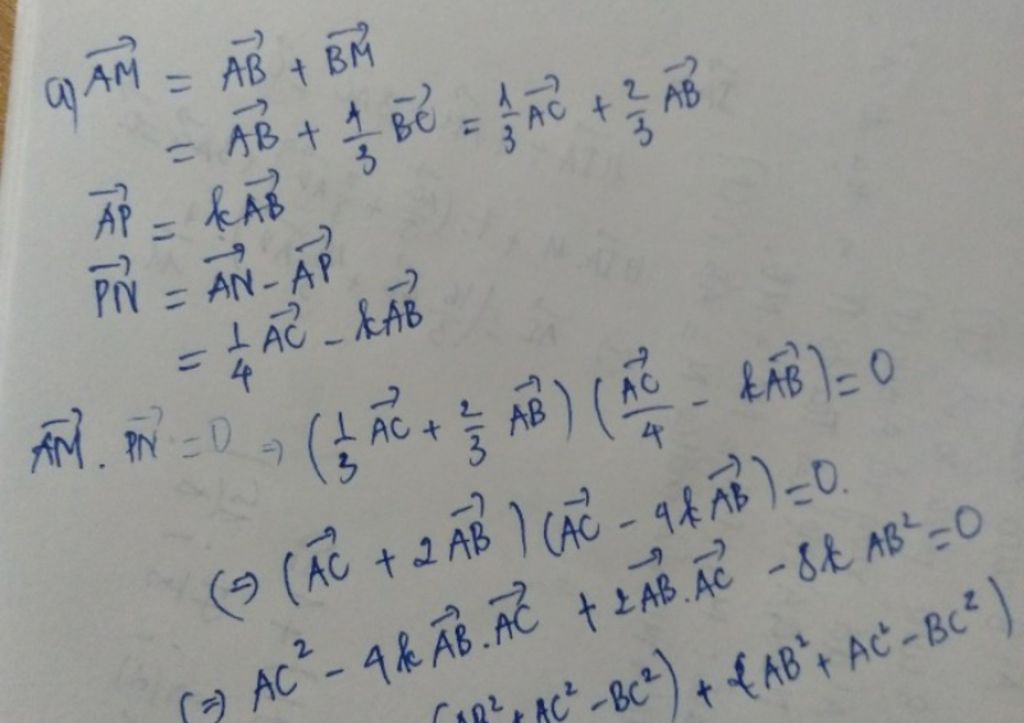 a) $\overrightarrow{AM} = \overrightarrow{AB} + \overrightarrow{BM}$
$= \overrightarrow{AB} + \frac{1}{3}\overrightarrow{BC} = \frac{1}{3}\overrightarrow{AC} + \frac{2}{3}\overrightarrow{AB}$
$\overrightarrow{AP} = k\overrightarrow{AB}$
$\overrightarrow{PN} = \overrightarrow{AN} - \overrightarrow{AP}$
$= \frac{1}{4}\overrightarrow{AC} - k\overrightarrow{AB}$
$\overrightarrow{AM} . \overrightarrow{PN} = 0 \Rightarrow (\frac{1}{3}\overrightarrow{AC} + \frac{2}{3}\overrightarrow{AB})(\frac{\overrightarrow{AC}}{4} - k\overrightarrow{AB}) = 0$
$\Leftrightarrow (\overrightarrow{AC} + 2\overrightarrow{AB})(\overrightarrow{AC} - 4k\overrightarrow{AB}) = 0.$
$\Leftrightarrow AC^2 - 4k\overrightarrow{AB}.\overrightarrow{AC} + 2\overrightarrow{AB}.\overrightarrow{AC} - 8k AB^2 = 0$
$(AB^2 + AC^2 - BC^2) + (AB^2 + AC^2 - BC^2)$